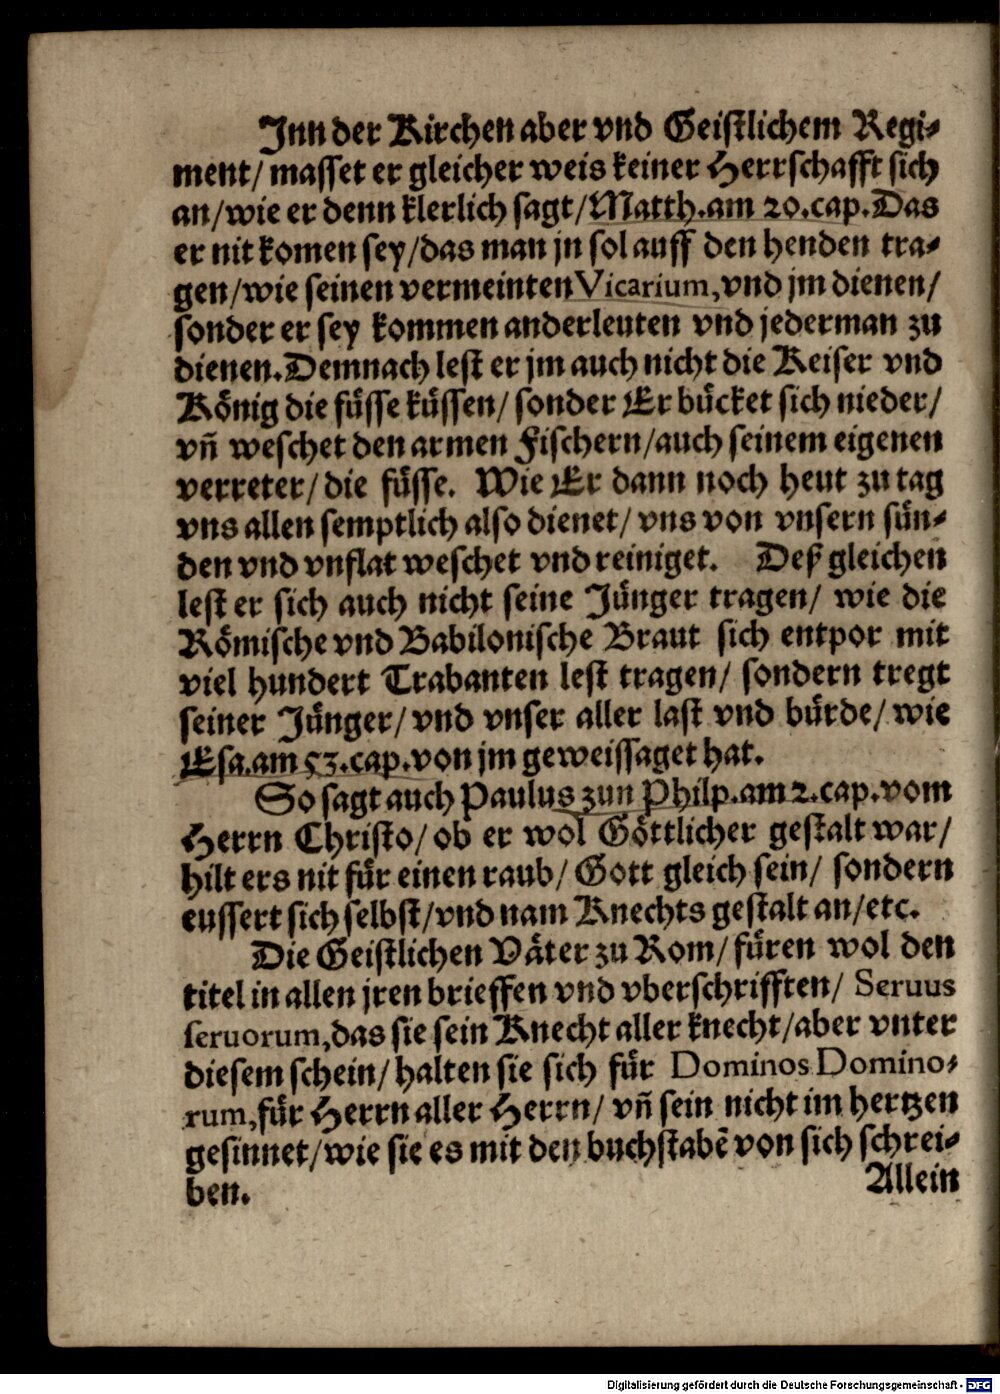 Jnn der Kirchen aber vnd Geistlichem Regi-
ment/ masset er gleicher weis keiner Herrschafft sich
an/wie er denn klerlich sagt/Matth.am 20.cap.Das
er nit komen sey/das man jn sol auff den henden tra-
gen/wie seinen vermeinten Vicarium,vnd jm dienen/
sonder er sey kommen anderleuten vnd jederman zu
dienen.Demnach lest er jm auch nicht die Keiser vnd
König die füsse küssen/ sonder Er bücket sich nieder/
vñ weschet den armen Fischern/auch seinem eigenen
verreter/ die füsse. Wie Er dann noch heut zu tag
vns allen semptlich also dienet/ vns von vnsern sün-
den vnd vnflat weschet vnd reiniget. Deß gleichen
lest er sich auch nicht seine Jünger tragen/ wie die
Römische vnd Babilonische Braut sich entpor mit
viel hundert Trabanten lest tragen/ sondern tregt
seiner Jünger/ vnd vnser aller last vnd bürde/ wie
Esa.am 53.cap.von jm geweissaget hat.
So sagt auch Paulus zun Philp.am 2.cap.vom
Herrn Christo/ ob er wol Göttlicher gestalt war/
hilt ers nit für einen raub/ Gott gleich sein/ sondern
eussert sich selbst/vnd nam Knechts gestalt an/etc.
Die Geistlichen Väter zu Rom/ füren wol den
titel in allen jren brieffen vnd vberschrifften/ Seruus
seruorum,das sie sein Knecht aller knecht/aber vnter
diesem schein/ halten sie sich für Dominos Domino-
rum,für Herrn aller Herrn/ vñ sein nicht im hertzen
gesinnet/wie sie es mit den buchstabē von sich schrei-
ben.
Allein
Digitalisierung gefördert durch die Deutsche Forschungsgemeinschaft - DFG